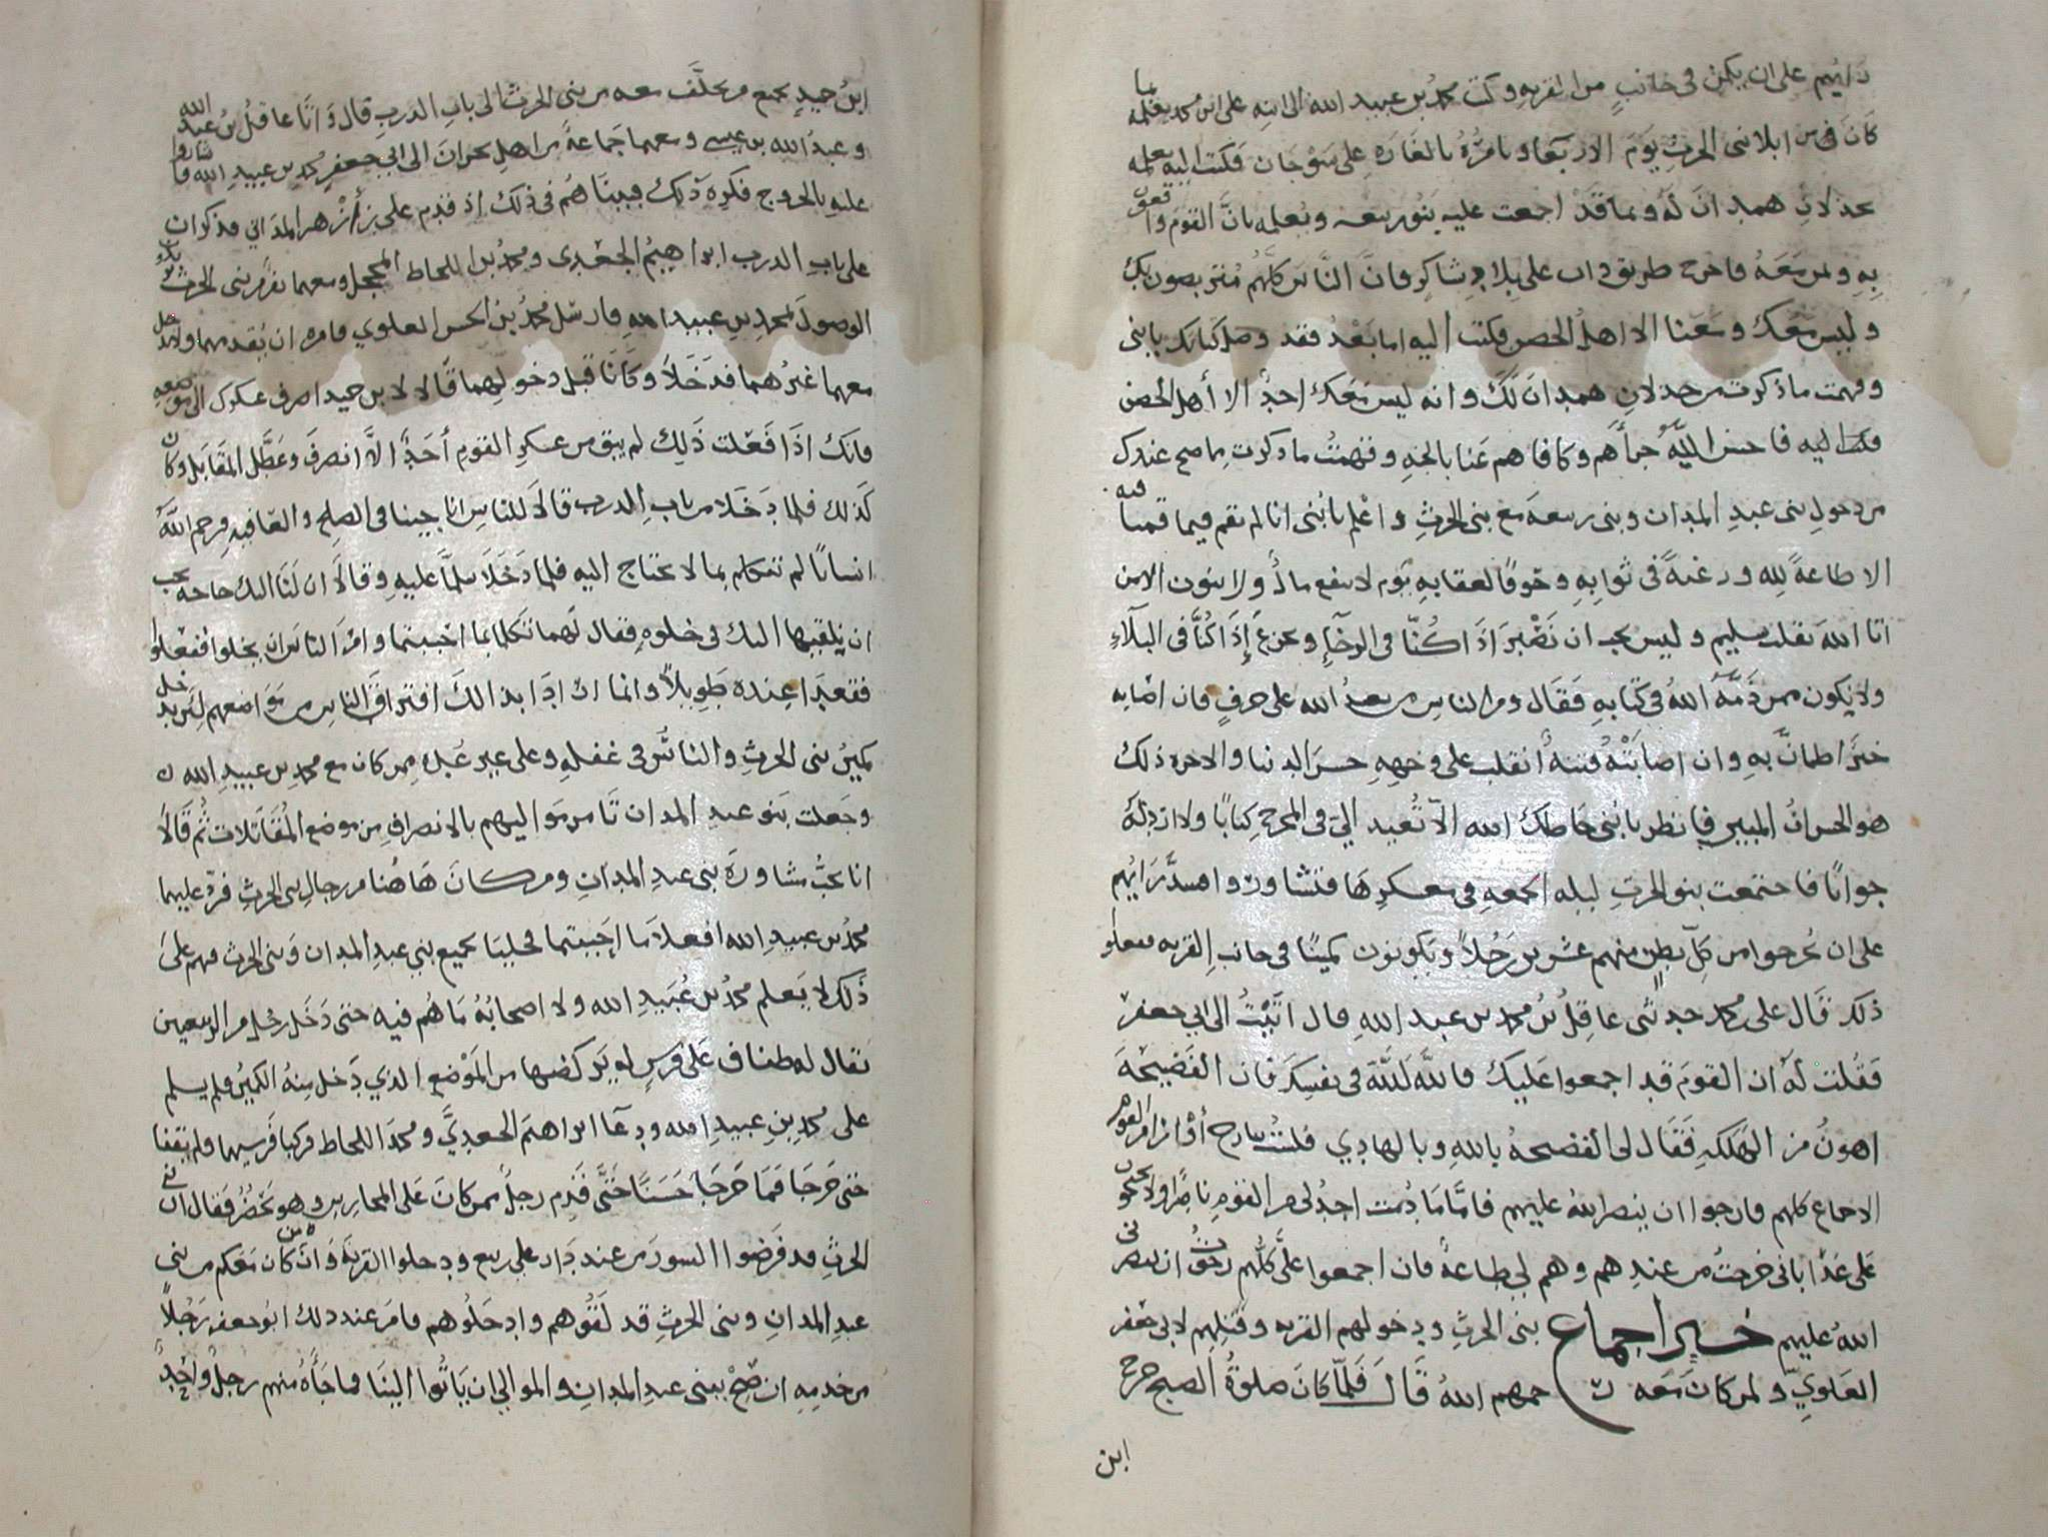 رايهم على ان يكمن في جانب من القريه وكتب محمد بن عبيد الله الى ابنه على ابن محمد يعلمه بما
كان في من ابلا بني الحرث يوم الاربعا ويامره بالغاره على سوحان فكتب اليه يعلمه
بخذلان همدان له وبما قد اجمعت عليه بنو ربيعه ويعلمه بان القوم واقعون
به وبمن معه فاخرج طريق داب على بلاد شاكر فان الناس كلهم متربصون بك
وليس معك ومعنا الا اهل الحصن فكتب اليه اما بعد فقد وصل كتابك يا بني
وفهمت ما ذكرت من خذلان همدان لك وانه ليس معك احد الا أهل الحصن
فاحسن الله جزأهم وكافاهم عنا بالجنه وفهمت ما ذكرت مما صح عندك
من دخول بني عبد المدان وبني ربيعه مع بني الحرث واعلم يا بني انا لم نقم فيما قمنا فيه
الا طاعة لله ورغبة في ثوابه وخوفا لعقابه يوم لا ينفع مال ولا بنون الا من
اتا الله بقلب سليم وليس يجب ان نصبر اذا كنا في الرخاء ونجزع إذا كنا في البلاء
ولا نكون ممن ذمه الله في كتابه فقال ومن الناس من يعبد الله على حرف فان اصابه
خير اطمان به وان اصابته فتنة انقلب على وجهه خسر الدنيا والاخره ذلك
هو الخسران المبين فانظر يا بني حاطك الله الا تعيد الي في المخرج كتابا ولا ارد له
جوابا فاجتمعت بنو الحرث ليله الجمعه في معسكرها فتشاوروا راءيهم
على ان يخرجوا من كل بطن منهم عشرين رجلا ويكونون كمينا في جانب القريه ففعلوا
ذلك قال على بن محمد حدثني عاقل بن محمد بن عبد الله قال اتيت الى ابي جعفر
فقلت له ان القوم قد اجمعوا عليك فالله الله في نفسك فان الفضيحه
اهون من الهلكه فقال لى الفضحه بالله وبالهادي قلت
الاجماع كلهم فارجوا ان ينصر الله عليهم فاما ما دمت اجد لي من القوم ناصرا ولا يحتجون
على غدا باني خرجت من عندهم وهم لي طاعه فان اجمعوا علي كلهم رجوت ان ينصرني
الله عليهم خبر اجماع بني الحرث ودخولهم القريه وقتلهم لابي جعفر
العلوي ولمن كان معه رحمهم الله قال فلما كان صلوة الصبح خرج
ابن
ابن حميد بجمع من تخلف معه من بني الحرث الى باب الدرب قال واتا عاقل بن عبد الله
وعبد الله بن عيسى ومعهما جماعة من اهل نجران الى ابي جعفر محمد بن عبيد الله فاشاروا
عليه بالخروج فكره ذلك فبينا هم في ذلك اذ قدم على بن ازهر المداني فذكر ان
على باب الدرب ابراهيم الجعدي ومحمد بن اللحاط المحجل ومعهما نفر من بني الحرث يريدون
الوصول لمحمد بن عبيد الله فارسل محمد بن الحسن العلوي فامره ان يقدمهما ولا يدخل
معهما غيرهما فدخلا وكانا قبل دخولهما قالا لابن حميد اصرف عسكرك الى موضعه
فانك اذا فعلت ذلك لم يبق من عسكر القوم أحد الا انصرف وعطل المقابل وكان
كذلك فلما دخلا من باب الدرب قالا للناس انا جينا في الصلح والعافيه فرحم الله
انسانا لم تتكلم بما لا يحتاج اليه فلما دخلا سلما عليه وقالا ان لنا اليك حاجه نحب
ان نلقيها اليك في خلوه فقال لهما تكلما بما احببتما وامر الناس ان يخلوا ففعلوا
فقعدا عنده طويلا وانما ارادا بذالك افتراق الناس من مواضعهم ليدخل
كمين بني الحرث والناس في غفله وعلى غير عُبله ممن كان مع محمد بن عبيد الله
وجعلت بنو عبد المدان تامر مواليهم بالانصراف من موضع المقاتلات ثم قالا
انا نحب مشاورة بني عبد المدان ومن كان هاهنا من رجال بني الحرث فرد عليهما
محمد بن عبيد الله افعلا ما احببتما فخليا بجميع بني عبد المدان وبني الحرث فهم على
ذلك لا يعلم محمد بن عبيد الله ولا اصحابه ما هم فيه حتى دخل رجل من الربيعين
يقال له طناف على فرس له يركضها من الموضع الذي دخل منه الكمين فلم يسلم
على محمد بن عبيد الله ودعا ابراهيم الجعدي ومحمد اللحاط فركبا فرسيهما ولم يقفا
حتى خرجا فما خرجا حسنا حتى قدم رجل ممن كان على المحارس وهو يحضر فقال ان بني
الحرث قد فرضوا السور من عند دار على ربيع ودخلوا القريه وان من كان معكم من بني
عبد المدان وبني الحرث قد لقوهم وادخلوهم فامر عند ذلك ابو جعفر رجلا
من خدمه ان صح ببني عبد المدان والموالي ان ياتوا الينا فما جاءه منهم رجل واحد